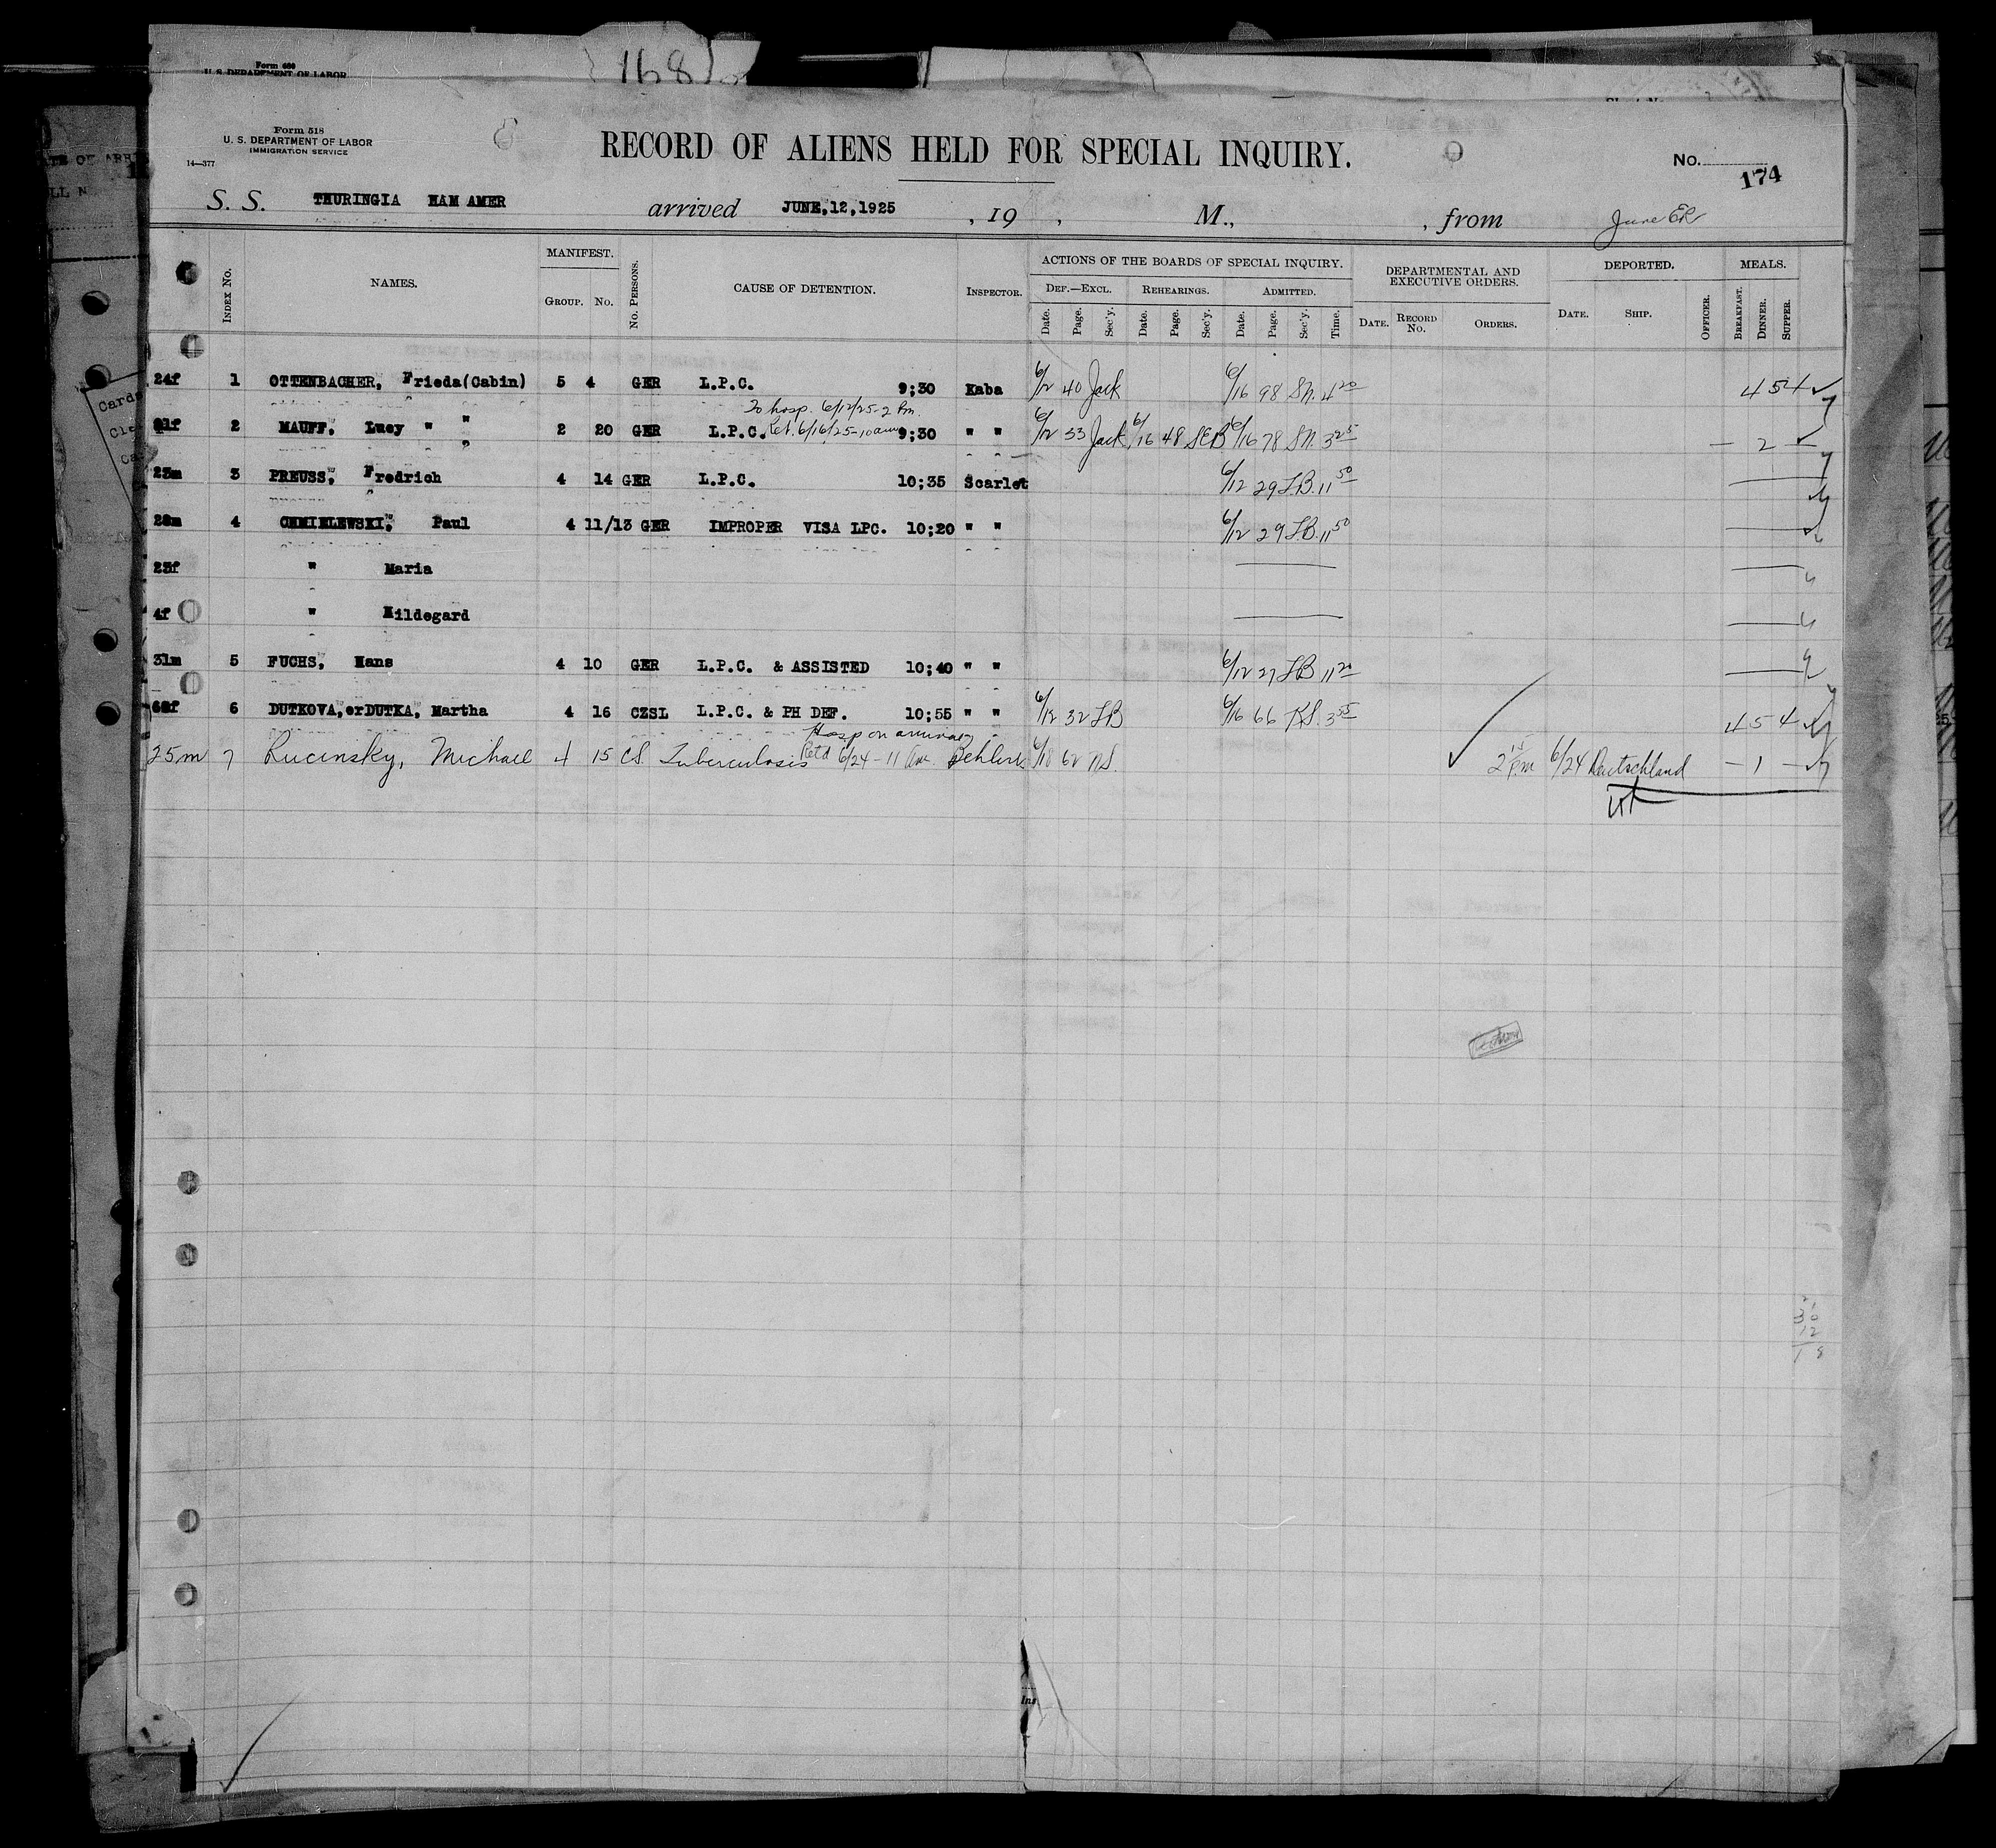 168
Form 680
U. S. DEPARTMENT OF LABOR
Form 518
U. S. DEPARTMENT OF LABOR
IMMIGRATION SERVICE
14—377
RECORD OF ALIENS HELD FOR SPECIAL INQUIRY.
No. 174
S. S. THURINGIA HAM AMER arrived JUNE,12,1925 , 19 , M., , from June ER
INDEX No. NAMES. MANIFEST. GROUP. No. No. PERSONS. CAUSE OF DETENTION. INSPECTOR. ACTIONS OF THE BOARDS OF SPECIAL INQUIRY. DEPARTMENTAL AND EXECUTIVE ORDERS. DEPORTED. MEALS.
DEF.—EXCL. REHEARINGS. ADMITTED.
Date. Page. Sec'y. Date. Page. Sec'y. Date. Page. Sec'y. Time. DATE. RECORD No. ORDERS. DATE. SHIP. OFFICER. BREAKFAST. DINNER. SUPPER.
24f 1 OTTENBACHER, Frieda(Cabin) 5 4 GER L.P.C. 9;30 Kaba 6/12 40 Jack 6/16 98 SN. 4 20 4 5 4
To hosp. 6/12/25-2 Pm.
21f 2 MAUFF, Lucy " " 2 20 GER L.P.C. Ret. 6/16/25-10am 9;30 " " 6/12 33 Jack 6/16 48 SEB 6/16 78 SN. 3 25 — 2 —
23m 3 PREUSS, Fredrich 4 14 GER L.P.C. 10;35 Scarlet 6/12 29 LB. 11 50
28m 4 CHMIELEWSKI, Paul 4 11/13 GER IMPROPER VISA LPC. 10;20 " " 6/12 29 LB. 11 50
23f " Maria
4f " Hildegard
31m 5 FUCHS, Hans 4 10 GER L.P.C. & ASSISTED 10;40 " " 6/12 27 LB 11 20
68f 6 DUTKOVA,orDUTKA, Martha 4 16 CZSL L.P.C. & PH DEF. 10:55 " " 6/12 32 LB 6/16 66 KS. 3 55 4 5 4
Hosp on arrival
25m 7 Rucinsky, Michael 4 15 CS. Tuberculosis Retd 6/24-11 am. 6/18 62 NS. 2 15 Pm 6/24 Deutschland — 1 —
30
12
18
Ins